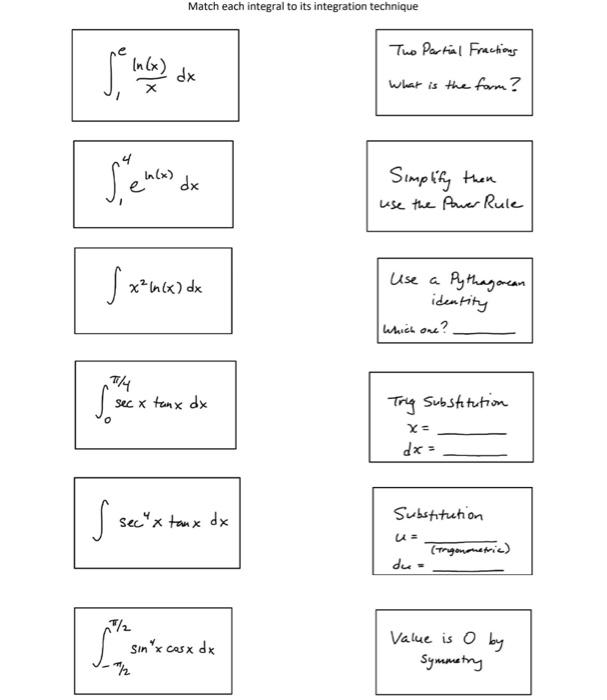 Match each integral to its integration technique
∫₁ᵉ ln(x)/x dx
Two Partial Fractions
What is the form?
∫₁⁴ e^ln(x) dx
Simplify then
use the Power Rule
∫ x² ln(x) dx
Use a Pythagorean
identity
Which one? ______
∫₀^π/4 sec x tan x dx
Trig Substitution
x = ______
dx = ______
∫ sec⁴x tan x dx
Substitution
u = ______
(trigonometric)
du = ______
∫₋π/2^π/2 sin⁴x cos x dx
Value is 0 by
Symmetry